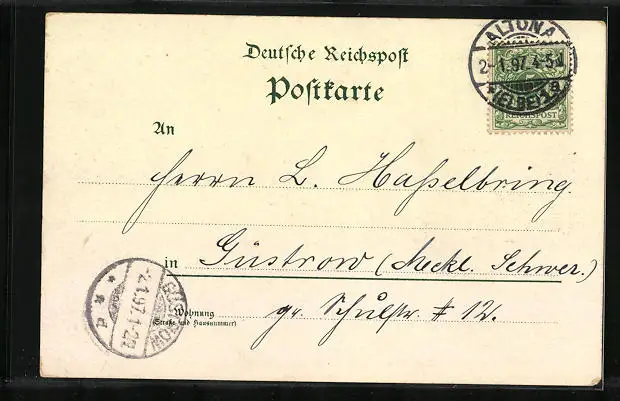 Deutsche Reichspost
Postkarte
ALTONA
2-1.97.4-5
(ELBE) 1
REICHSPOST
An
Herrn L. Haßelbring.
in Güstrow (Meckl. Schwer.)
Wohnung
(Straße und Hausnummer)
gr. Schulstr # 12.
GÜSTROW
-2.1.97.1-2